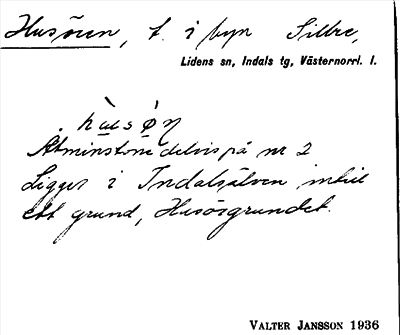 Husören, t. i byn Sillre,
Lidens sn, Indals tg, Västernorrl. l.
Åtminstone delvis på nr 2
Ligger i Indalsälven intill
ett grund, Husörgrundet.
VALTER JANSSON 1936